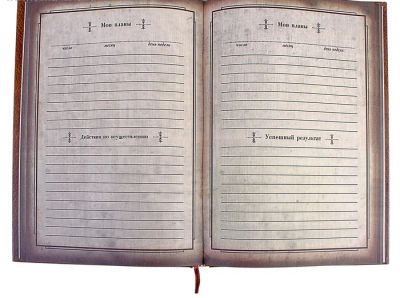 Мои планы
число месяц день недели
Действия по осуществлению
Мои планы
число месяц день недели
Успешный результат